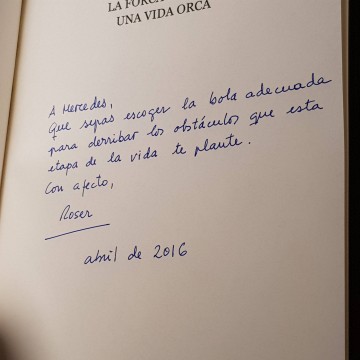 LA FORCA
UNA VIDA ORCA
A Mercedes,
Que sepas escoger la bola adecuada
para derribar los obstáculos que esta
etapa de la vida te plante.
Con afecto,
Roser
abril de 2016